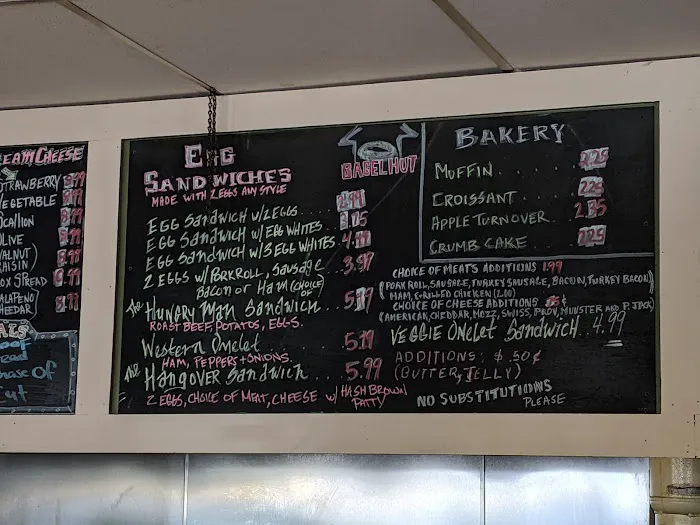 EAM CHEESE
STRAWBERRY
VEGETABLE
SCALLION
OLIVE
WALNUT
RAISIN
OX SPREAD
JALAPENO
CHEDDAR
EGG
SANDWICHES
MADE WITH 2 EGGS ANY STYLE
BAGEL HUT
EGG SANDWICH W/2 EGGS
EGG SANDWICH W/ EGG WHITES
EGG SANDWICH W/3 EGG WHITES
2 EGGS W/ PORKROLL, SAUSAGE 3.97
BACON OR HAM (CHOICE OF)
THE HUNGRY MAN SANDWICH
ROAST BEEF, POTATOS, EGGS.
WESTERN OMELET
HAM, PEPPERS + ONIONS.
THE HANGOVER SANDWICH 5.99
2 EGGS, CHOICE OF MEAT, CHEESE W/ HASH BROWN
PATTY
BAKERY
MUFFIN 2.25
CROISSANT 2.25
APPLE TURNOVER
CRUMB CAKE 2.25
CHOICE OF MEATS ADDITIONS 1.99
(PORK ROLL, SAUSAGE, TURKEY SAUSAGE, BACON, TURKEY BACON)
HAM, GRILLED CHICKEN (2.00)
CHOICE OF CHEESE ADDITIONS
(AMERICAN, CHEDDAR, MOZZ, SWISS, PROV, MUNSTER AND P. JACK)
VEGGIE OMELET SANDWICH . 4.99
ADDITIONS: $ .50¢
(BUTTER, JELLY)
NO SUBSTITUTIONS
PLEASE